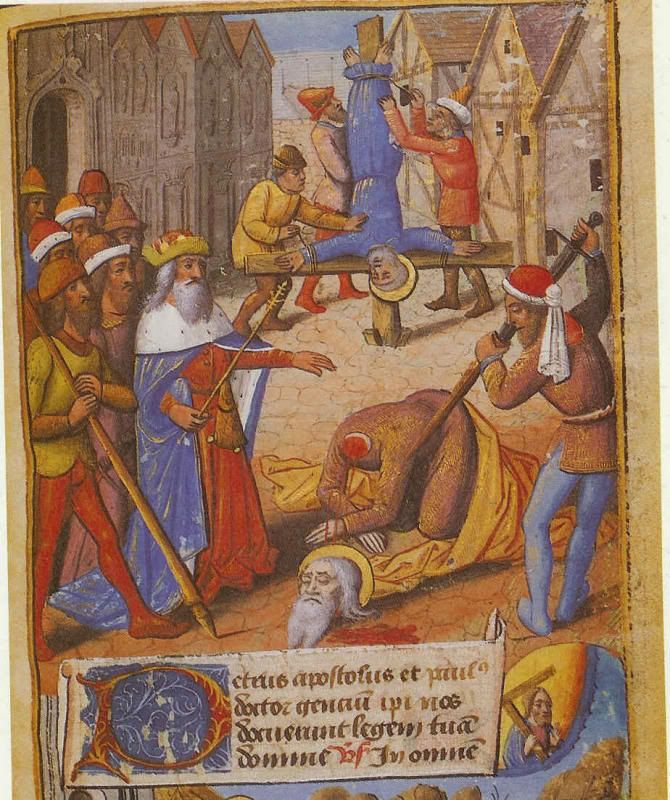 Petrus apostolus et paulꝰ
doctor genciū ipi nos
docuerunt legem tuā
domine Vs In omnē